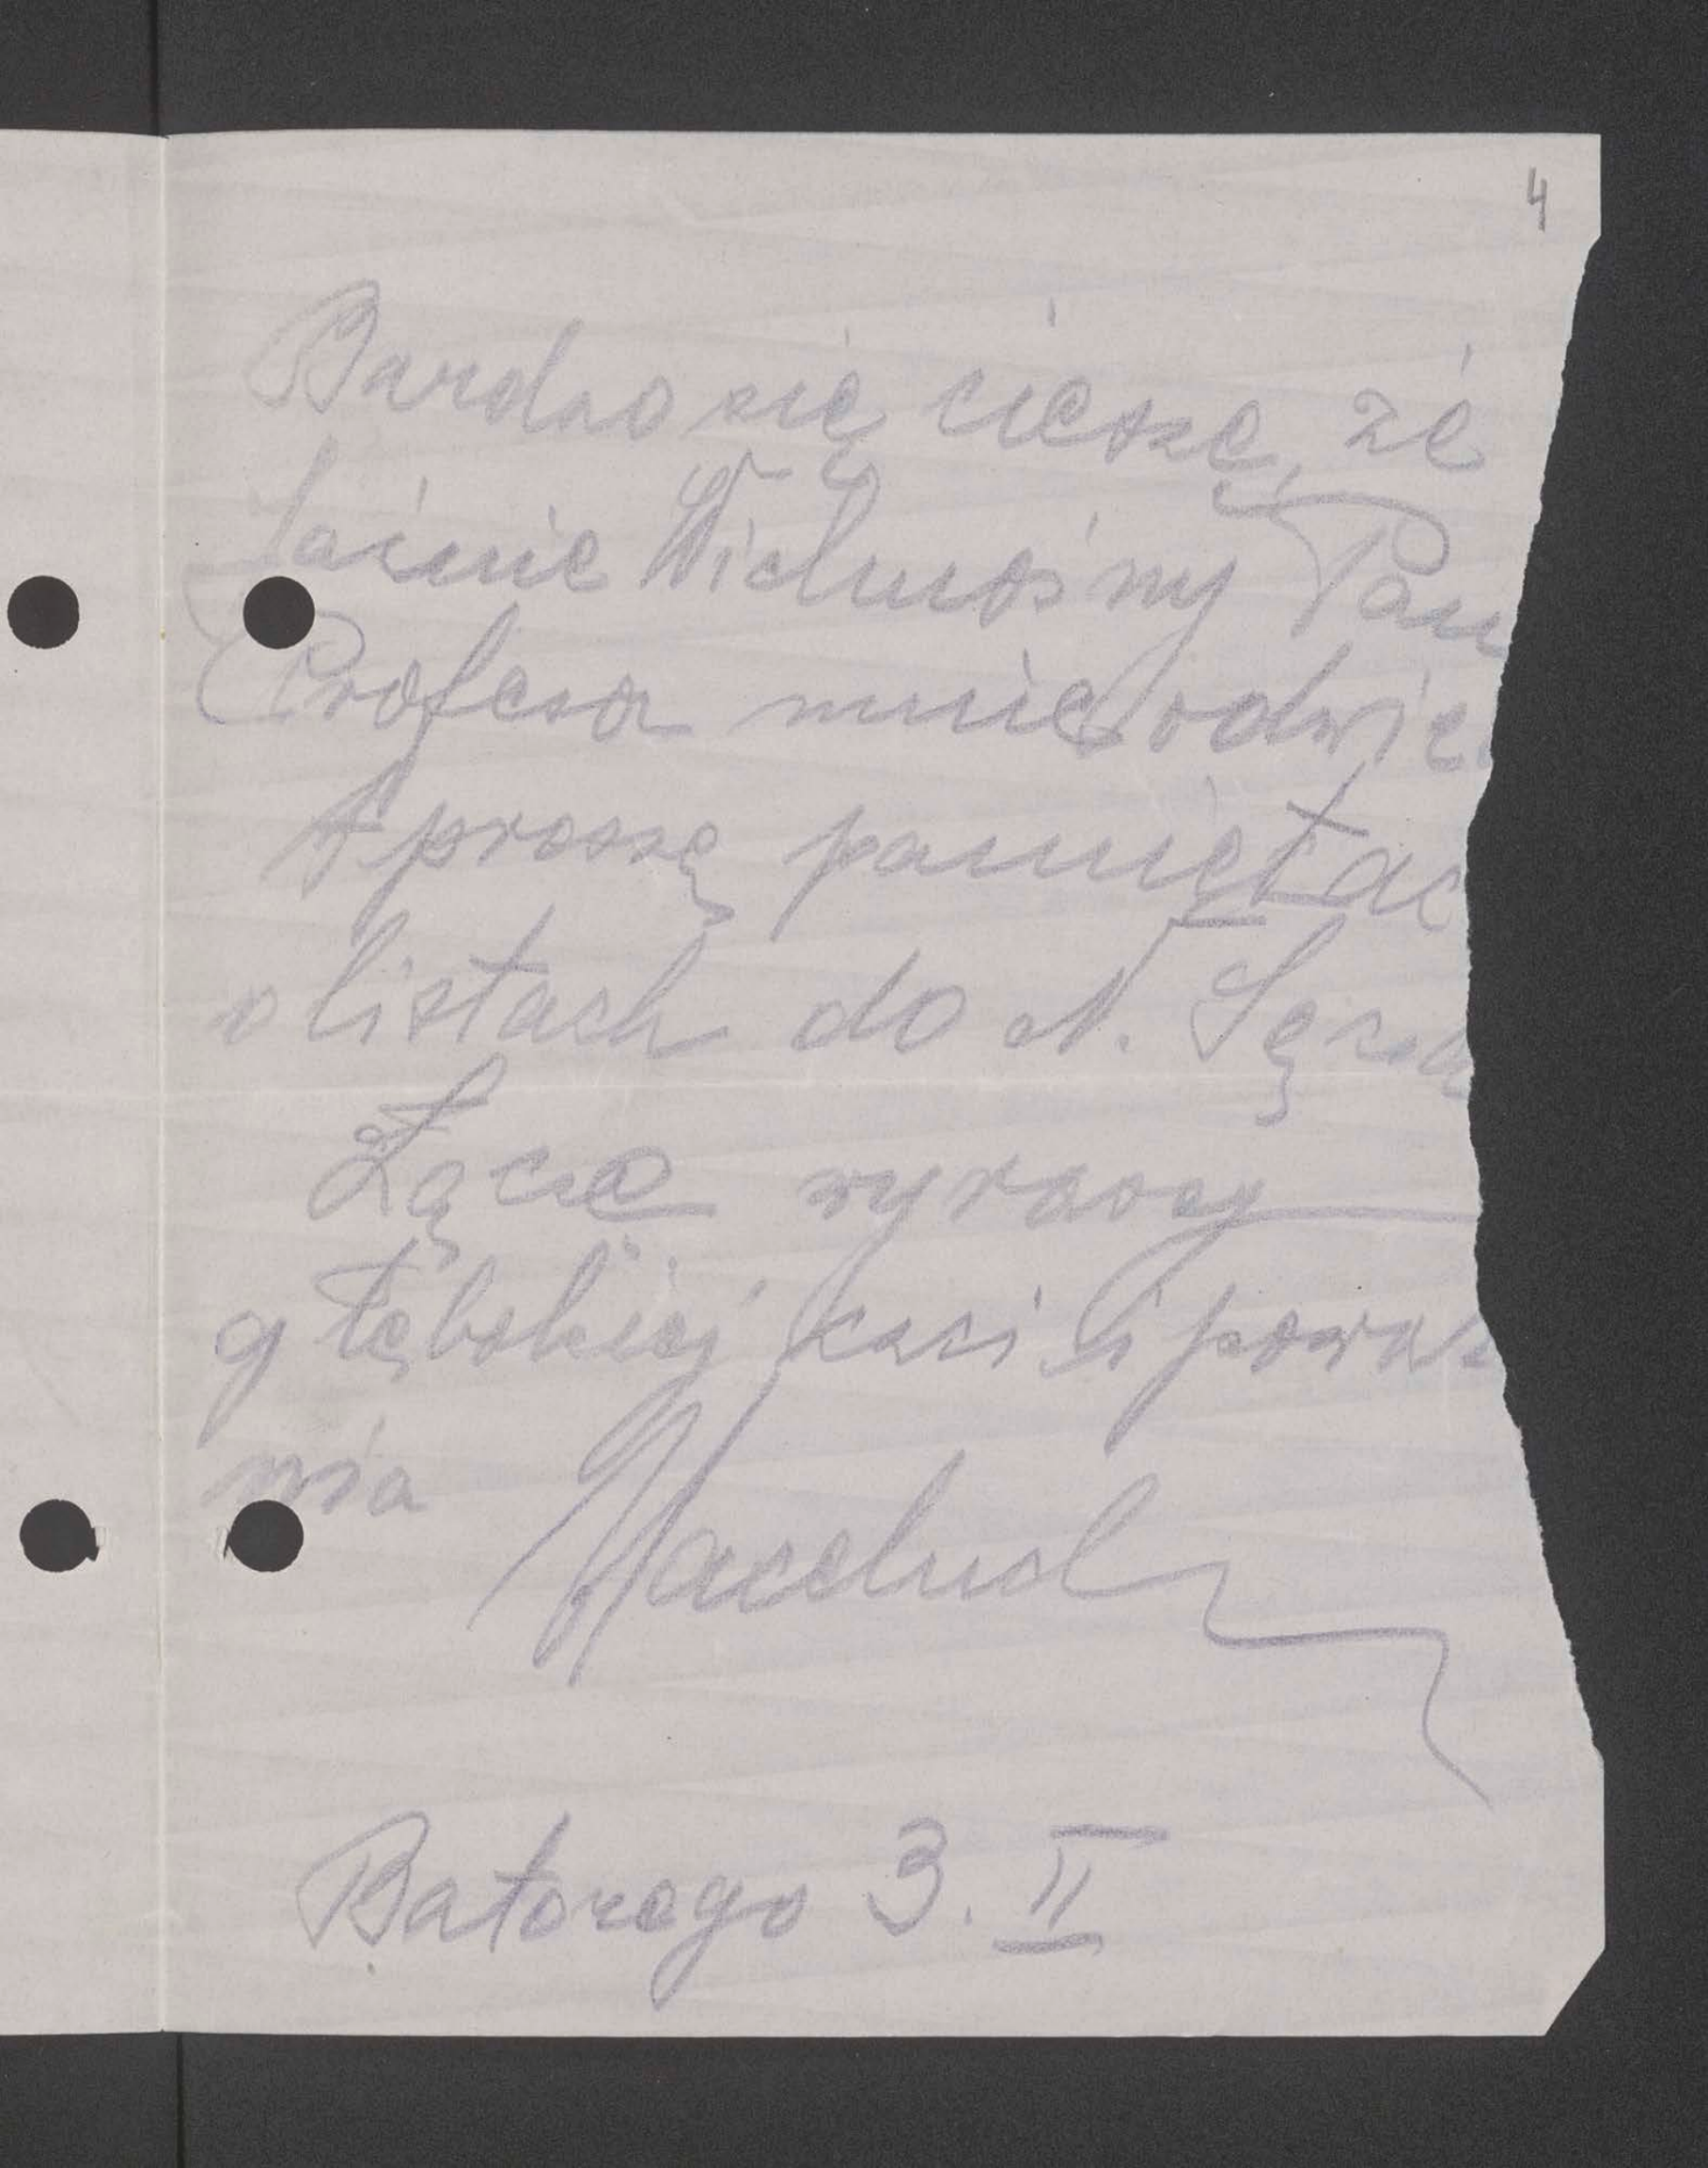 4
Bardzo się cieszę, że
Jaśnie Wielmożny Pan
Profesor mnie odwie
A proszę pamiętać
o listach do N. Sącza
Łączę wyrazy
głębokiej czci i poważ
nia
Batorego 3. II